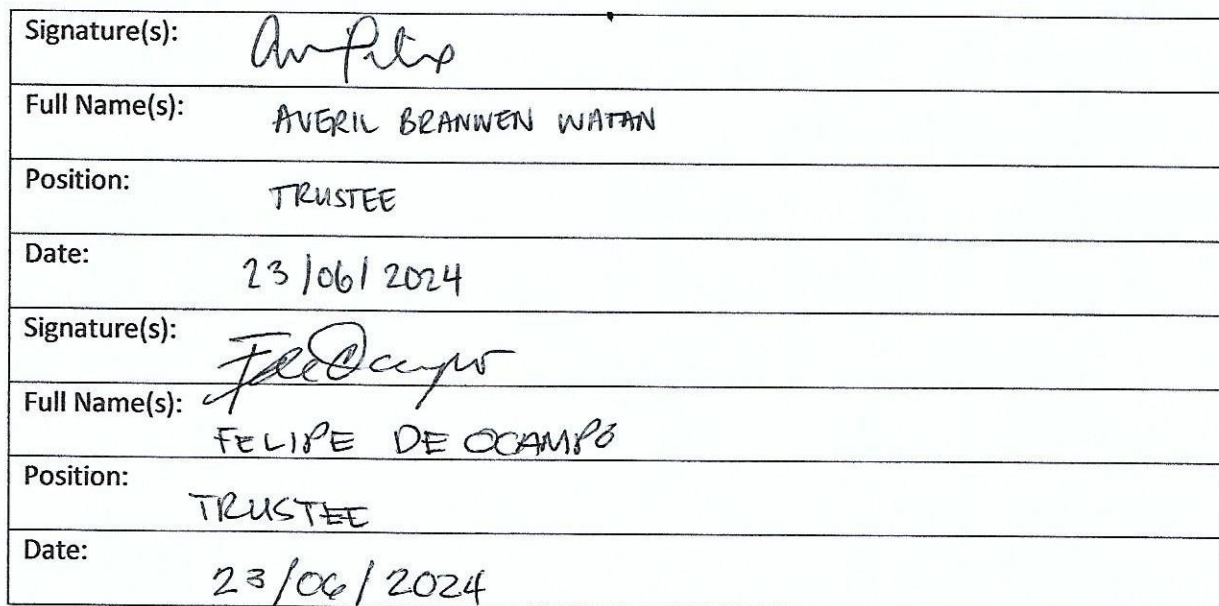 Signature(s):
Full Name(s): AVERIL BRANWEN WATAN
Position: TRUSTEE
Date: 23/06/2024
Signature(s):
Full Name(s): FELIPE DE OCAMPO
Position: TRUSTEE
Date: 23/06/2024